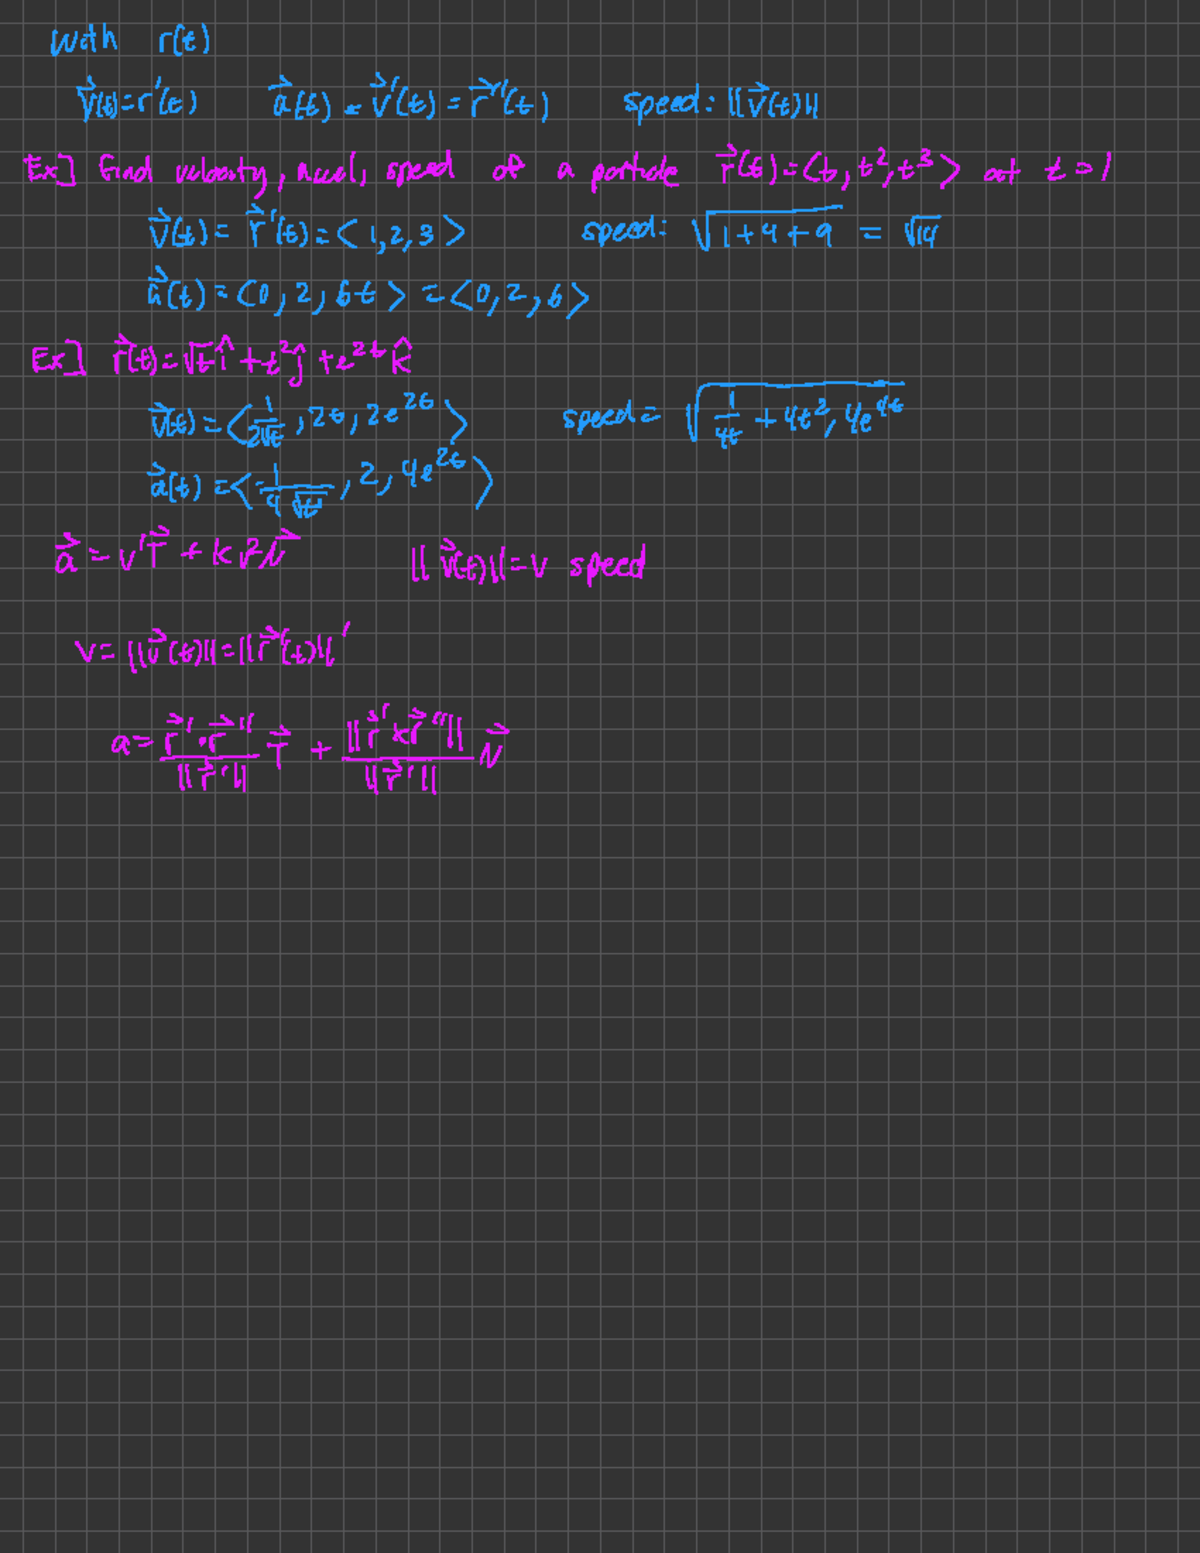 with r(t)
v⃗(t)=r'(t) a⃗(t) = v⃗'(t) = r⃗''(t) speed: ||v⃗(t)||
Ex] find velocity, accel, speed of a particle r⃗(t)=<t, t², t³> at t=1
v⃗(t) = r⃗'(t) = <1,2,3> speed: √(1+4+9) = √14
a⃗(t) = <0, 2, 6t> = <0,2,6>
Ex] r⃗(t)=√t î + t² ĵ + e^(2t) k̂
v⃗(t) = <1/(2√t), 2t, 2e^(2t)> speed = √(1/(4t) + 4t², 4e^(4t))
a⃗(t) = <-1/(4√t), 2, 4e^(2t)>
a⃗ = v'T⃗ + kv²N⃗ ||v⃗(t)||=v speed
v= ||v⃗(t)||=||r⃗'(t)||'
a= (r⃗'·r⃗'')/||r⃗'|| T⃗ + ||r⃗'×r⃗''||/||r⃗'|| N⃗